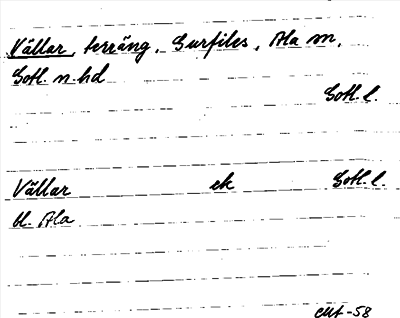 Vällar, terräng, Gurfiles, Ala sn,
Gotl. n. hd
Gotl. l.
Vällar ek Gotl. l.
bl. Ala